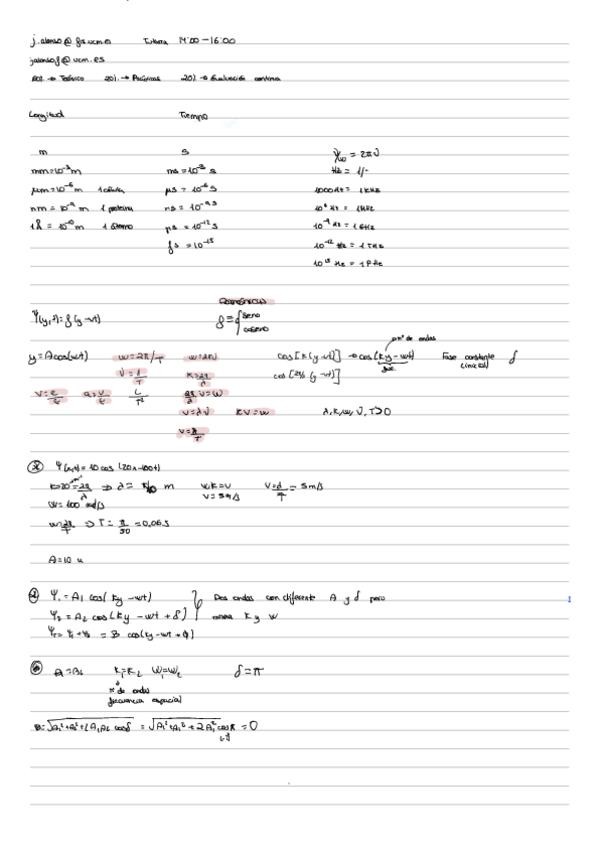 j.alonso@fis.ucm.es Tutoria 14:00-16:00
jalonsof@ucm.es
80% → Teórico 20% → Prácticas 20% → Evaluación continua
Longitud Tiempo
m s
mm=10⁻³m ms=10⁻³ s Hz = 1/s
μm=10⁻⁶m 1 célula μs = 10⁻⁶ s 1000Hz = 1KHz
nm = 10⁻⁹ m 1 proteína ns = 10⁻⁹ s 10⁶ Hz = 1MHz
1Å = 10⁻¹⁰ m 1 átomo ps = 10⁻¹² s
fs = 10⁻¹⁵ 10¹⁵ Hz = 1PHz
Armónicas
Ψ(y,t)=f(y-vt) f≡{seno
coseno
nº de ondas
y=Acos(wt) w=2π/T w=2πν cos[K(y-vt)] → cos(ky-wt) Fase constante δ
fase (inicial)
ν=1/T K=2π/λ cos[2π/λ (y-vt)]
v=e/t a=v/t L/T² 2π/λ v=w
v=λν Kv=w λ,K,w,ν,T>0
v=λ/T
Ψ(x,t)=10 cos (20x-100t)
K=20=2π/λ ⇒ λ= π/10 m v=λ/T = 5m/s
v=5m/s
w=100 rad/s
w=2π/T ⇒ T= π/50 =0,06s
A=10 u
Ψ₁=A₁ cos(ky-wt) } Dos ondas con diferente A y δ pero
Ψ₂=A₂ cos(ky-wt+δ) misma K y w
Ψ_T=Ψ₁+Ψ₂ = B cos(ky-wt+φ)
K₁=K₂ W₁=W₂ δ=π
nº de ondas
frecuencia espacial
B=√A₁²+A₂²+2A₁A₂ cosδ = √A₁²+A₁²+2A₁² cosπ =0